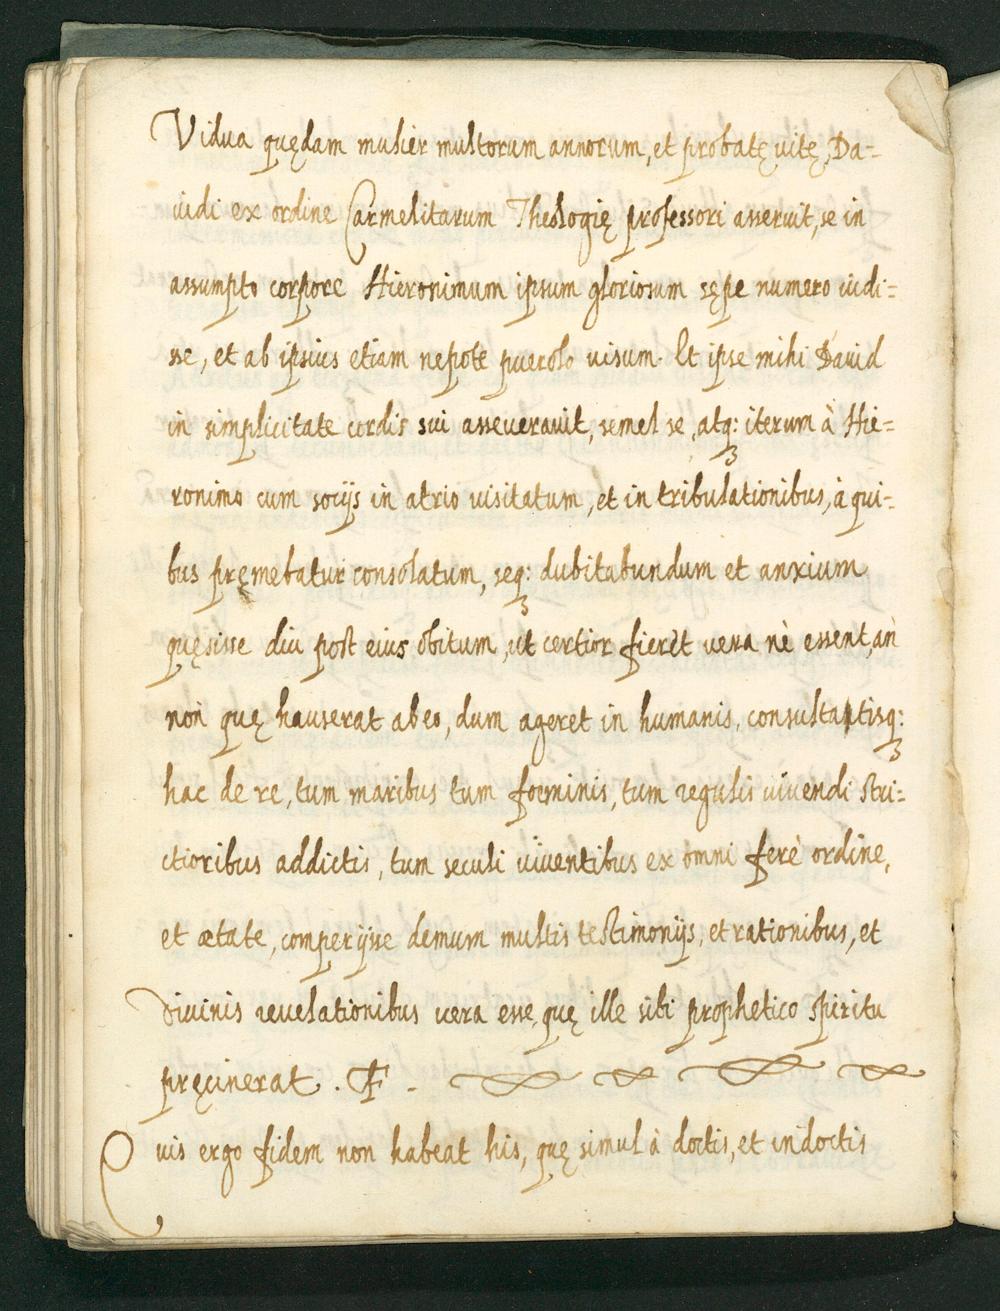 Vidua quędam mulier multorum annorum, et probatę uitę, Da=
uidi ex ordine Carmelitarum Theologię professori asseruit, se in
assumpto corpore Hieronimum ipsum gloriosum sępe numero uidi=
sse, et ab ipsius etiam nepote puerolo uisum. Et ipse mihi David
in simplicitate cordis sui asseuerauit, semel se, atq: iterum à Hie=
ronimo cum socijs in atrio uisitatum, et in tribulationibus, à qui=
bus pręmebatur consolatum, seq: dubitabundum et anxium
quęsisse diu post eius obitum, ut certior fierèt vera nè essent, an
non quę hauserat ab eo, dum ageret in humanis, consultatisq:
hac de re, tum maribus tum foeminis, tum regulis uiuendi stri=
ctioribus addictis, tum seculi viventibus ex omni ferè ordine,
et ætate, comperijsse demum multis testimonijs, et rationibus, et
Diuinis reuelationibus vera esse, quę ille sibi prophetico spiritu
pręcinerat. F.
Quis ergo fidem non habeat his, quę simul à doctis, et indoctis